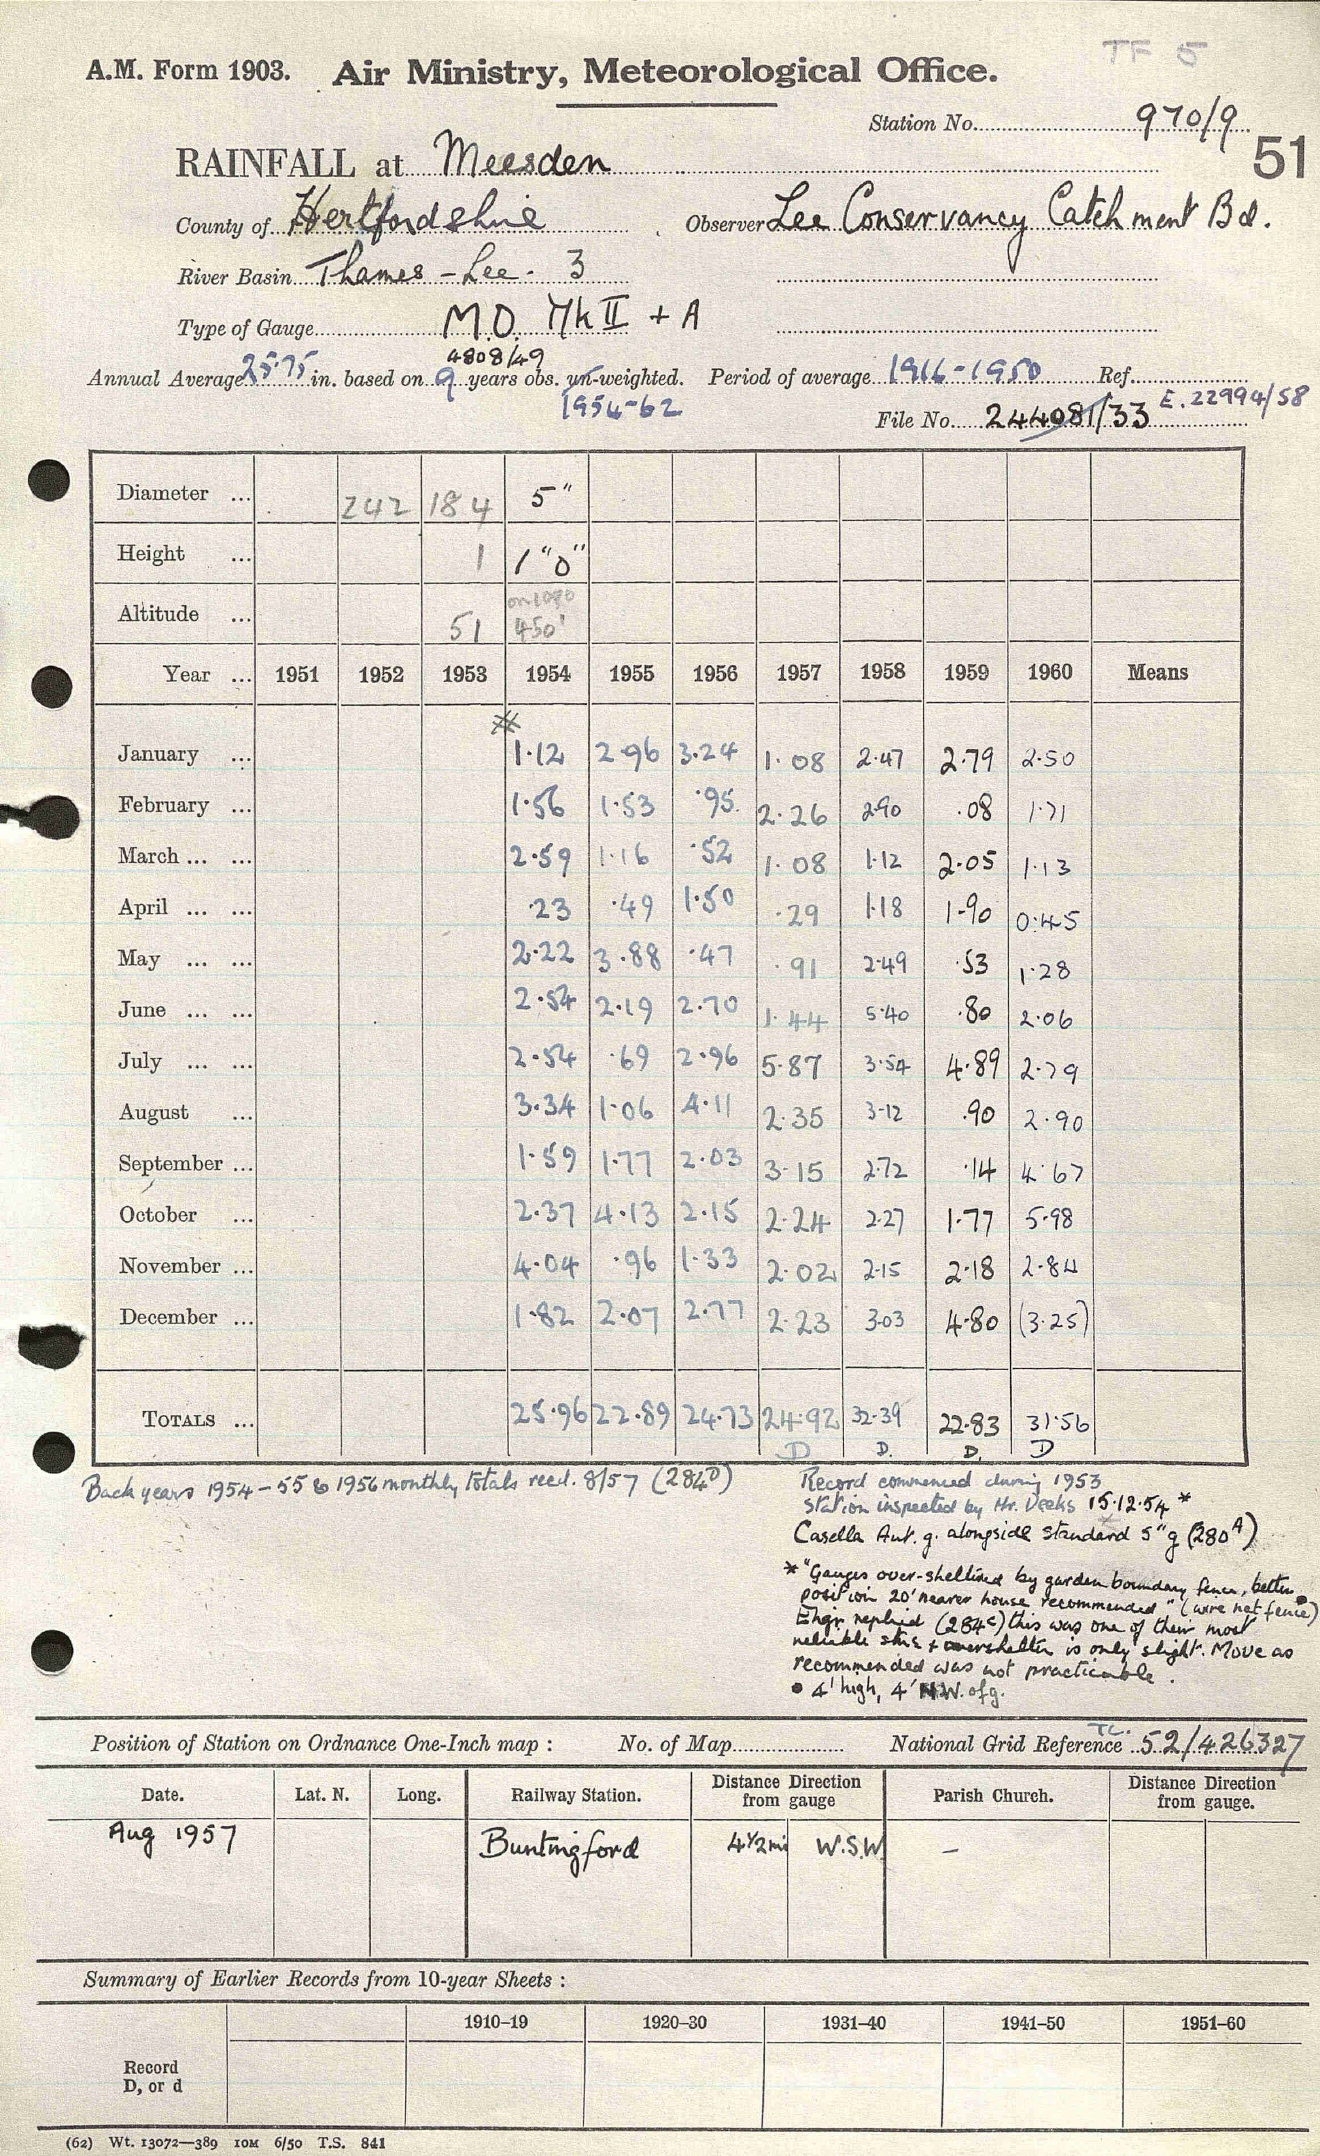 TF 5
A.M. Form 1903. Air Ministry, Meteorological Office.
Station No. 970/9
51
RAINFALL at Meesden
County of Hertfordshire Observer Lee Conservancy Catchment Bd.
River Basin Thames - Lee. 3
Type of Gauge M.O. Mk II + A
4808/49
Annual Average 25.75 in. based on 9 years obs. un-weighted. Period of average 1916-1950 Ref.
1954-62
File No. 244081/33 E.22994/58
Diameter ... 242 184 5"
Height ... 1 1"0"
Altitude ... 51 450'
Year ... 1951 1952 1953 1954 1955 1956 1957 1958 1959 1960 Means
*
January ... 1.12 2.96 3.24 1.08 2.47 2.79 2.50
February ... 1.56 1.53 .95 2.26 2.90 .08 1.71
March ... ... 2.59 1.16 .52 1.08 1.12 2.05 1.13
April ... ... .23 .49 1.50 .29 1.18 1.90 0.45
May ... ... 2.22 3.88 .47 .91 2.49 .53 1.28
June ... ... 2.54 2.19 2.70 1.44 5.40 .80 2.06
July ... ... 2.54 .69 2.96 5.87 3.54 4.89 2.79
August ... 3.34 1.06 4.11 2.35 3.12 .90 2.90
September ... 1.59 1.77 2.03 3.15 2.72 .14 4.67
October ... 2.37 4.13 2.15 2.24 2.27 1.77 5.98
November ... 4.04 .96 1.33 2.02 2.15 2.18 2.84
December ... 1.82 2.07 2.77 2.23 3.03 4.80 (3.25)
TOTALS ... 25.96 22.89 24.73 24.92 32.39 22.83 31.56
D D. D. D
Back years 1954-55 & 1956 monthly totals recd. 8/57 (284D)
Record commenced during 1953
Station inspected by Mr. Veeks 15.12.54 *
Casella Aut. g. alongside standard 5" g (280A)
* "Gauges over-sheltered by garden boundary fence, better
position 20' nearer house recommended" (wire net fence)
Engr replied (284c) this was one of their most
reliable stns & overshelter is only slight. Move as
recommended was not practicable.
• 4' high, 4' NW. of g.
Position of Station on Ordnance One-Inch map : No. of Map National Grid Reference TL. 52/426327
Date. Lat. N. Long. Railway Station. Distance Direction from gauge Parish Church. Distance Direction from gauge.
Aug 1957 Buntingford 4½mi W.S.W –
Summary of Earlier Records from 10-year Sheets :
1910–19 1920–30 1931–40 1941–50 1951–60
Record
D, or d
(62) Wt. 13072—389 10M 6/50 T.S. 841